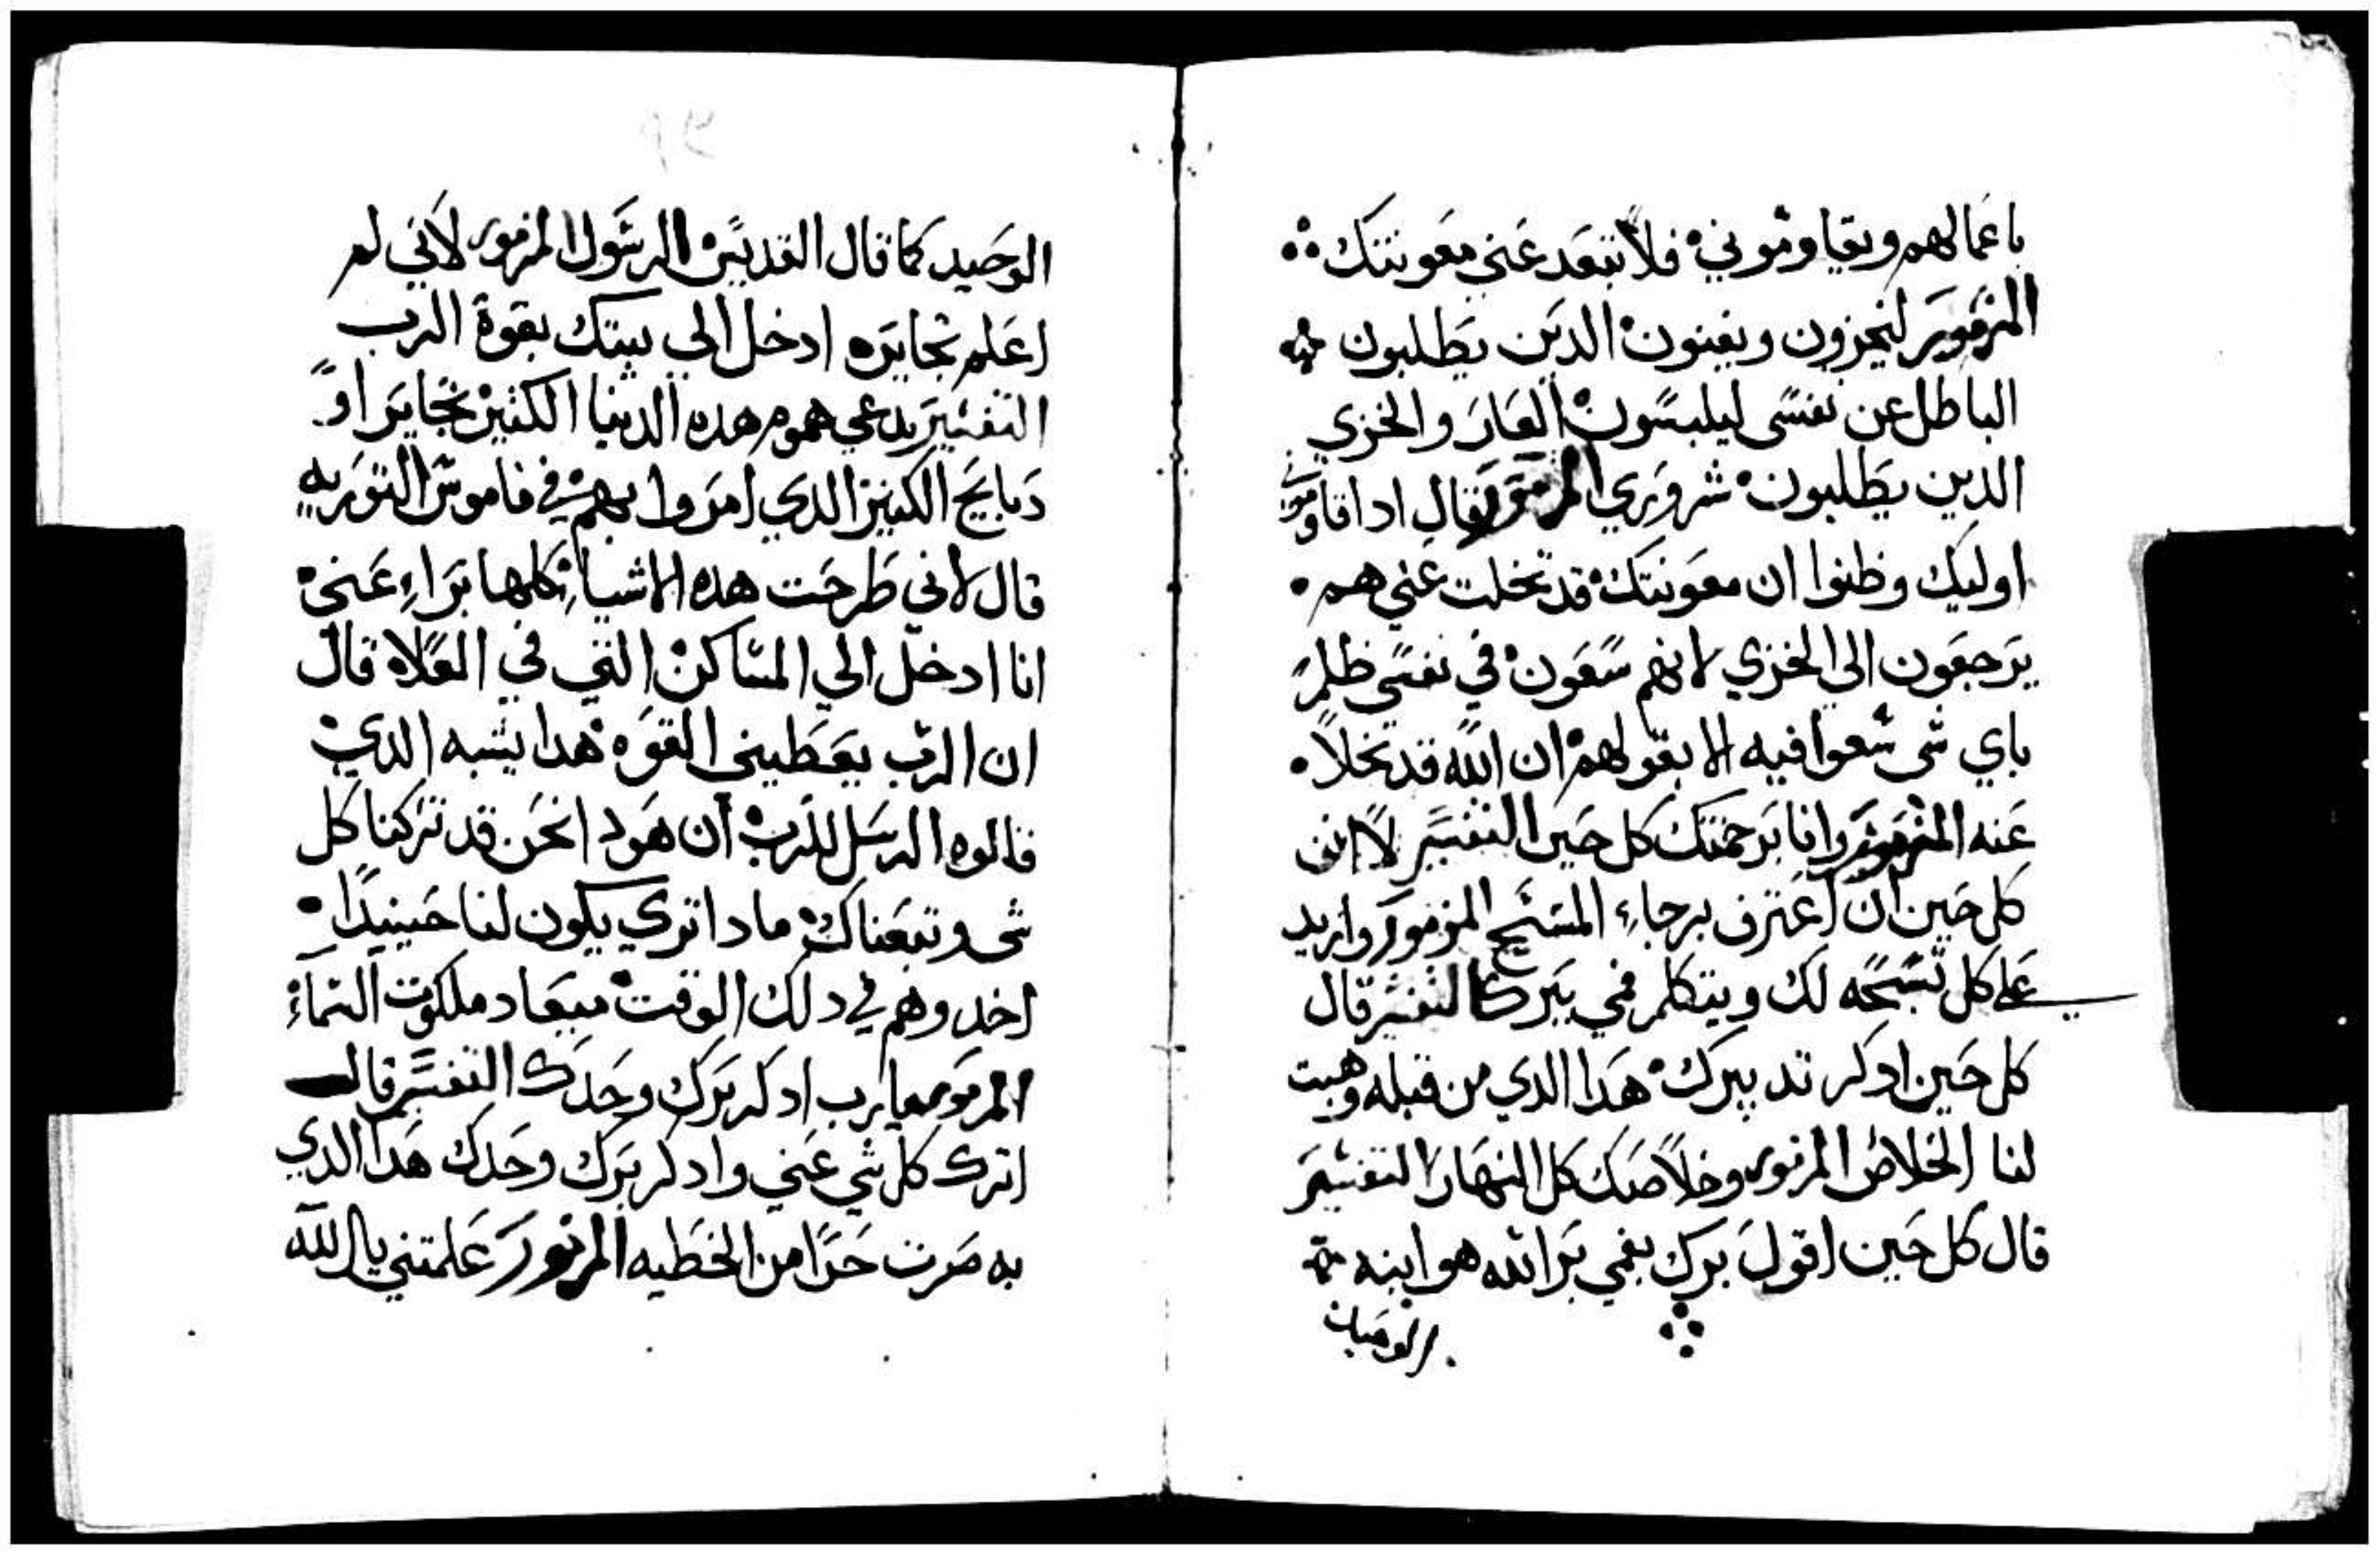 باعمالهم ويقاوموني فلا تبعد عني معونتك
المزمور ليخزون ويفنون الدين يطلبون
الباطل عن نفسي ليلبسون العار والخزي
الدين يطلبون شروري المزمور قال ادا قاوموني
اوليك وظنوا ان معونتك قد تخلت عني هم
يرجعون الي الخزي لانهم سعون في نفسي ظلم
باي شي سعوا فيه الا بقولهم ان الله قد تخلا
عنه المزمور وانا برحمتك كل حين التفسير لاانف
كل حين ان اعترف برجاء المسيح المزمور وازيد
علي كل تسبحه لك ويتكلم فمي ببرك التفسير قال
كل حين ادكر تدبيرك هدا الدي من قبله وهبت
لنا الخلاص المزمور وخلاصك كل النهار التفسير
قال كل حين اقول برك بفمي بر الله هو ابنه
الوحيد
الوحيد كما قال القديس الرسول المزمور لاني لم
اعلم تجايره ادخل الي بيتك بقوة الرب
التفسير يدعي هموم هده الدنيا الكثير تجاير او
دبايح الكثير الدي امروا بهم في ناموس التوريه
قال لاني طرحت هده الاشياء كلها براء عني
انا ادخل الي المساكن التي في العلاه قال
ان الرب يعطيني القوه هدا يشبه الدي
قالوه الرسل للرب ان هود انحن قد تركنا كل
شي وتبعناك مادا تري يكون لنا حينيدا
اخدوهم في دلك الوقت ميعاد ملكوت السماء
المزمور يارب ادكر برك وحدك التفسير قال
اترك كل شي عني وادكر برك وحدك هدا الدي
به صرت حرا من الخطيه المزمور علمتني ياالله